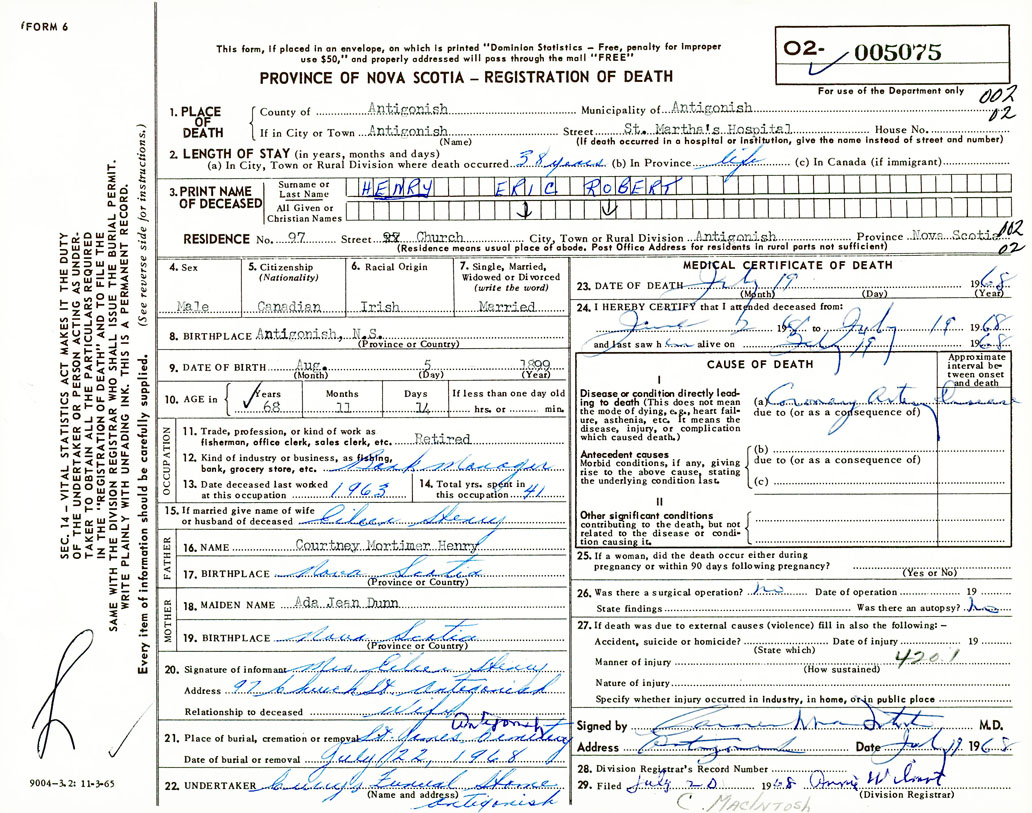 FORM 6
This form, if placed in an envelope, on which is printed "Dominion Statistics – Free, penalty for improper
use $50," and properly addressed will pass through the mail "FREE"
PROVINCE OF NOVA SCOTIA – REGISTRATION OF DEATH
02- 005075
For use of the Department only
002
02
1. PLACE OF DEATH
County of Antigonish Municipality of Antigonish
If in City or Town Antigonish Street St. Martha's Hospital House No.
(Name) (If death occurred in a hospital or institution, give the name instead of street and number)
2. LENGTH OF STAY (in years, months and days)
(a) In City, Town or Rural Division where death occurred 38 years (b) In Province life (c) In Canada (if immigrant)
3. PRINT NAME OF DECEASED
Surname or Last Name HENRY ERIC ROBERT
All Given or Christian Names
RESIDENCE No. 97 Street Church City, Town or Rural Division Antigonish Province Nova Scotia
(Residence means usual place of abode. Post Office Address for residents in rural parts not sufficient)
002
02
4. Sex
Male
5. Citizenship
(Nationality)
Canadian
6. Racial Origin
Irish
7. Single, Married,
Widowed or Divorced
(write the word)
Married
8. BIRTHPLACE Antigonish, N.S.
(Province or Country)
9. DATE OF BIRTH Aug. 5 1899
(Month) (Day) (Year)
10. AGE in Years Months Days If less than one day old
68 11 14 hrs. or min.
OCCUPATION
11. Trade, profession, or kind of work as
fisherman, office clerk, sales clerk, etc. Retired
12. Kind of industry or business, as fishing,
bank, grocery store, etc. Bank Manager
13. Date deceased last worked
at this occupation 1963
14. Total yrs. spent in
this occupation 41
15. If married give name of wife
or husband of deceased Eileen Henry
FATHER
16. NAME Courtney Mortimer Henry
17. BIRTHPLACE Nova Scotia
(Province or Country)
MOTHER
18. MAIDEN NAME Ada Jean Dunn
19. BIRTHPLACE Nova Scotia
(Province or Country)
20. Signature of informant Mrs. Eileen Henry
Address 97 Church St. Antigonish
Relationship to deceased wife
21. Place of burial, cremation or removal St. James Cemetery Antigonish
Date of burial or removal July 22, 1968
22. UNDERTAKER Funeral Home
(Name and address) Antigonish
MEDICAL CERTIFICATE OF DEATH
23. DATE OF DEATH July 19 1968
(Month) (Day) (Year)
24. I HEREBY CERTIFY that I attended deceased from:
June 2 1968 to July 19 1968
and last saw him alive on July 19 1968
CAUSE OF DEATH
Approximate
interval be-
tween onset
and death
I
Disease or condition directly lead-
ing to death (This does not mean
the mode of dying, e.g., heart fail-
ure, asthenia, etc. It means the
disease, injury, or complication
which caused death.)
(a) Coronary Artery Disease
due to (or as a consequence of)
Antecedent causes
Morbid conditions, if any, giving
rise to the above cause, stating
the underlying condition last.
(b)
due to (or as a consequence of)
(c)
II
Other significant conditions
contributing to the death, but not
related to the disease or condi-
tion causing it.
25. If a woman, did the death occur either during
pregnancy or within 90 days following pregnancy?
(Yes or No)
26. Was there a surgical operation? no Date of operation 19
State findings Was there an autopsy? no
27. If death was due to external causes (violence) fill in also the following: –
Accident, suicide or homicide? Date of injury 19
(State which)
Manner of injury 420.1
(How sustained)
Nature of injury
Specify whether injury occurred in industry, in home, or in public place
Signed by M.D.
Address Antigonish Date July 19 1968
28. Division Registrar's Record Number
29. Filed July 20 1968
(Division Registrar)
C. MACINTOSH
SEC. 14 – VITAL STATISTICS ACT MAKES IT THE DUTY
OF THE UNDERTAKER OR PERSON ACTING AS UNDER-
TAKER TO OBTAIN ALL THE PARTICULARS REQUIRED
IN THE "REGISTRATION OF DEATH" AND TO FILE THE
SAME WITH THE DIVISION REGISTRAR WHO SHALL ISSUE THE BURIAL PERMIT.
WRITE PLAINLY WITH UNFADING INK. THIS IS A PERMANENT RECORD.
Every item of information should be carefully supplied. (See reverse side for instructions.)
9004-3.2: 11-3-65